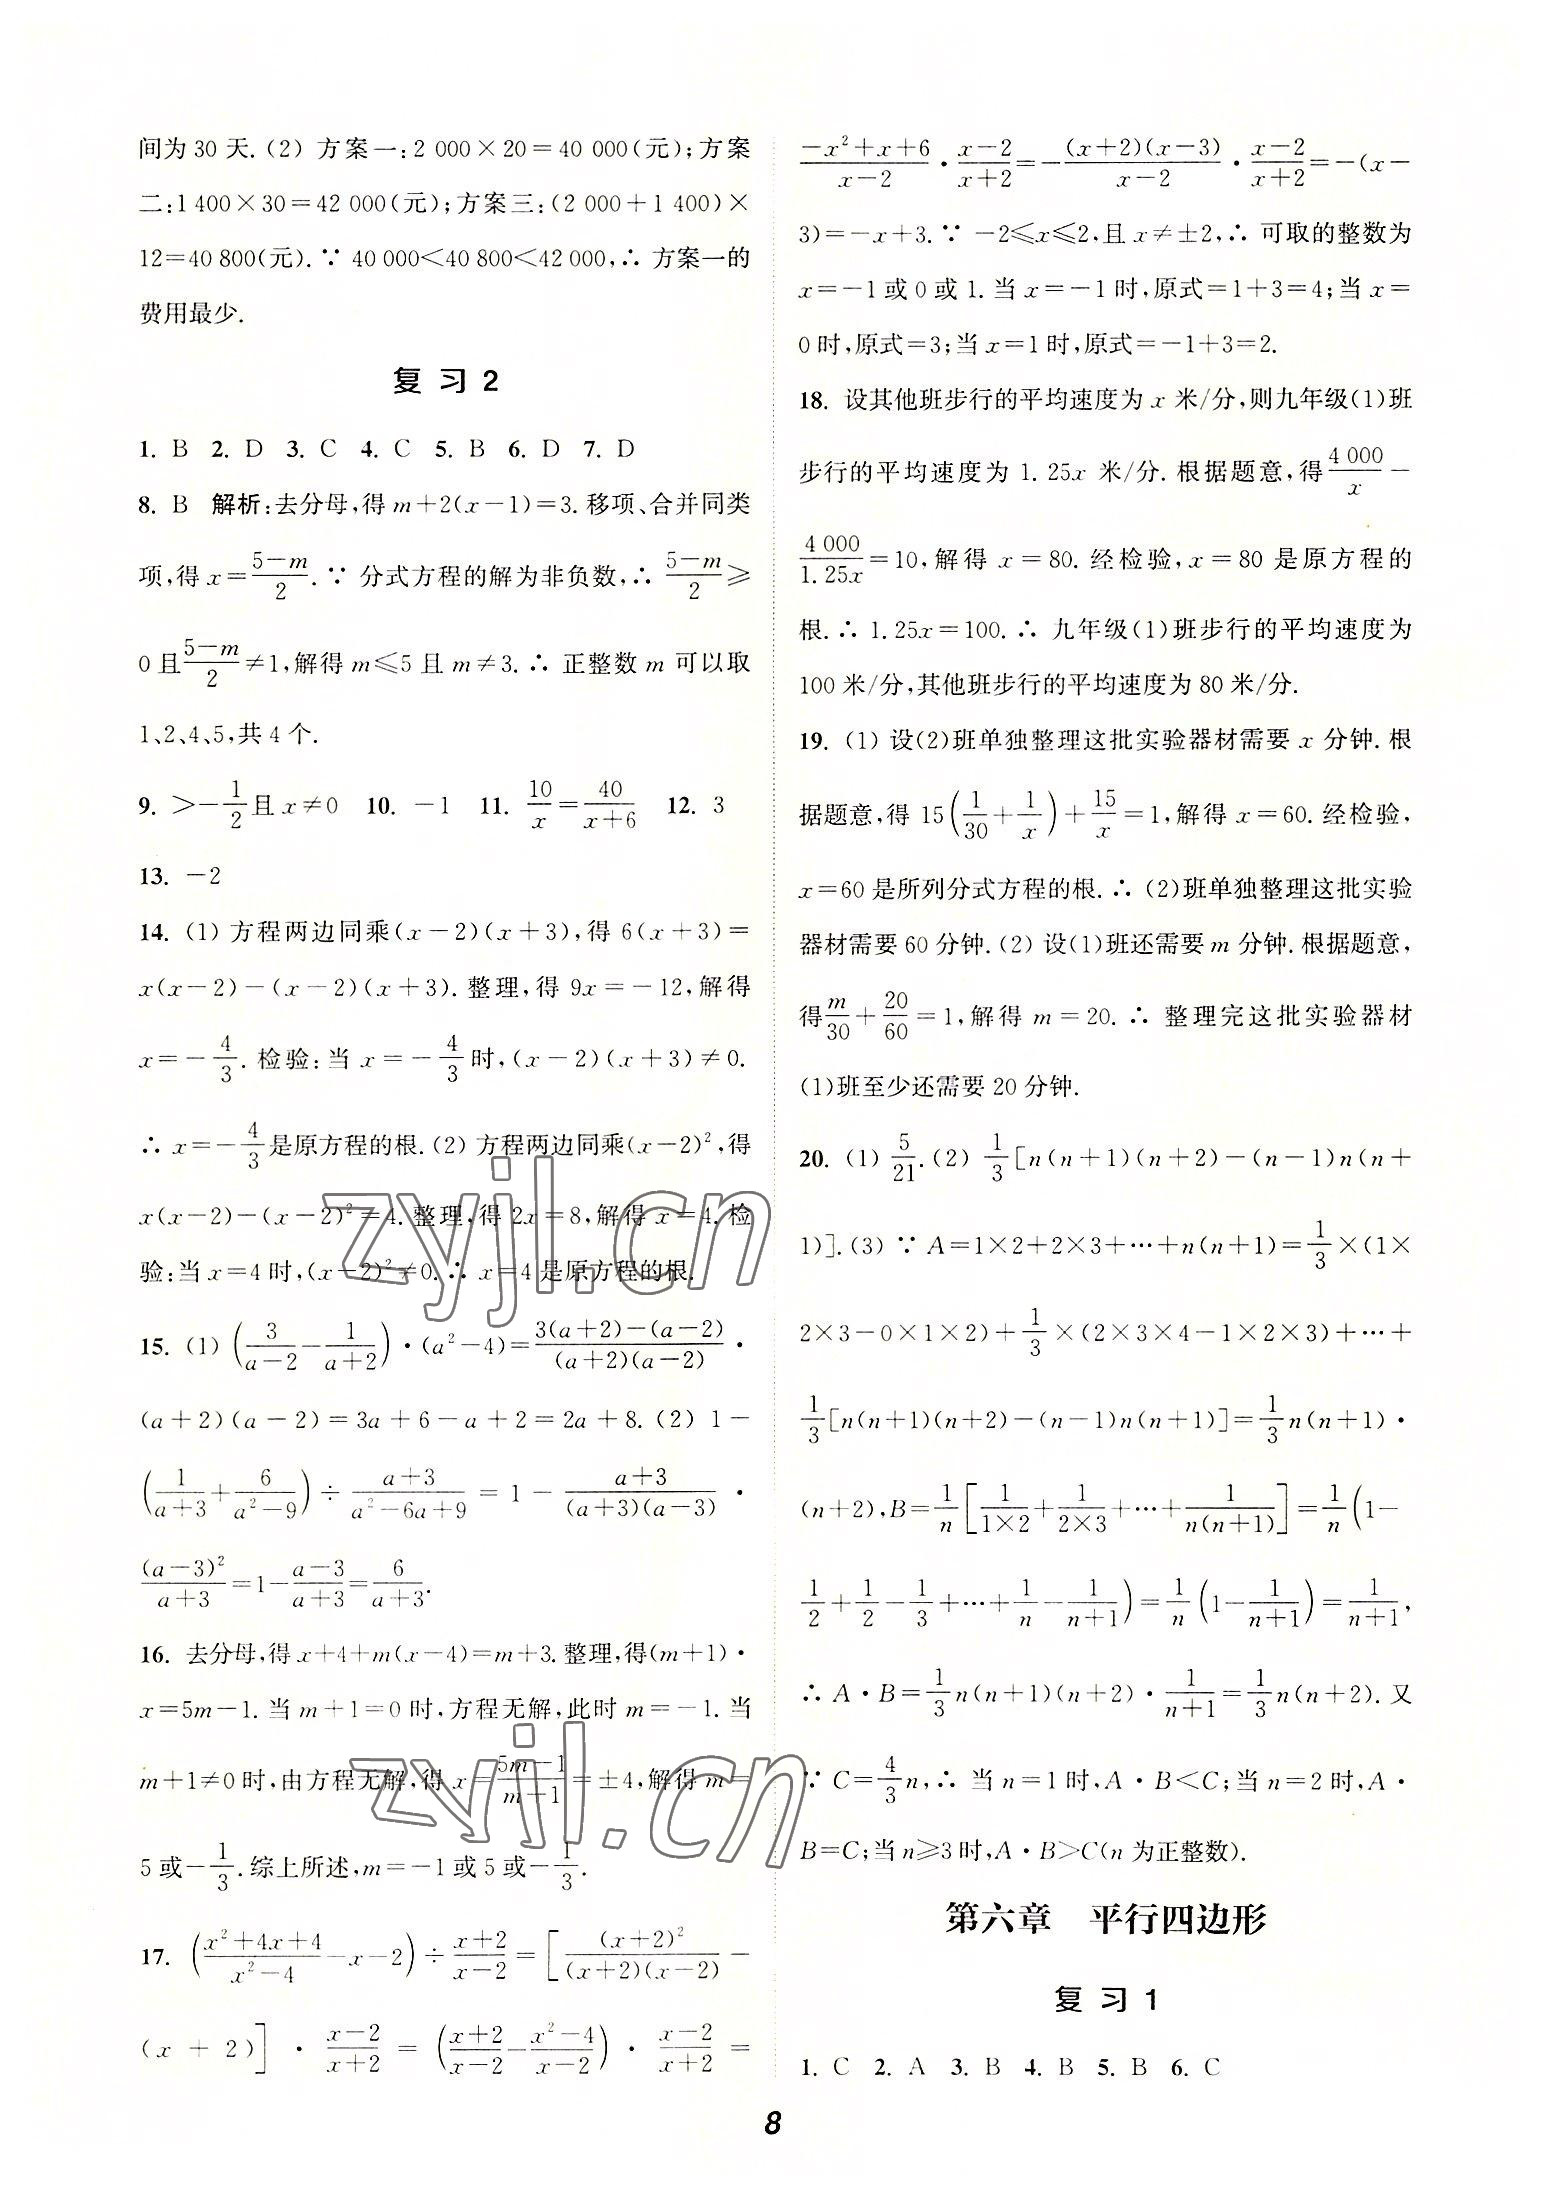 间为 30 天. (2) 方案一:2 000×20=40 000(元);方案
二:1 400×30=42 000(元);方案三:(2 000+1 400)×
12=40 800(元). ∵ 40 000<40 800<42 000,∴ 方案一的
费用最少.
复 习 2
1. B 2. D 3. C 4. C 5. B 6. D 7. D
8. B 解析:去分母,得 m+2(x-1)=3. 移项、合并同类
项,得 x=\frac{5-m}{2}. ∵ 分式方程的解为非负数,∴ \frac{5-m}{2}≥
0 且\frac{5-m}{2}≠1,解得 m≤5 且 m≠3. ∴ 正整数 m 可以取
1、2、4、5,共 4 个.
9. >-\frac{1}{2}且 x≠0 10. -1 11. \frac{10}{x}=\frac{40}{x+6} 12. 3
13. -2
14. (1) 方程两边同乘(x-2)(x+3),得 6(x+3)=
x(x-2)-(x-2)(x+3). 整理,得 9x=-12,解得
x=-\frac{4}{3}. 检验:当 x=-\frac{4}{3}时,(x-2)(x+3)≠0.
∴ x=-\frac{4}{3}是原方程的根. (2) 方程两边同乘(x-2)²,得
x(x-2)-(x-2)²=4. 整理,得 2x=8,解得 x=4. 检
验:当 x=4 时,(x-2)²≠0. ∴ x=4 是原方程的根.
15. (1) (\frac{3}{a-2}-\frac{1}{a+2})·(a²-4)=\frac{3(a+2)-(a-2)}{(a+2)(a-2)}·
(a+2)(a-2)=3a+6-a+2=2a+8. (2) 1-
(\frac{1}{a+3}+\frac{6}{a²-9})÷\frac{a+3}{a²-6a+9}=1-\frac{a+3}{(a+3)(a-3)}·
\frac{(a-3)²}{a+3}=1-\frac{a-3}{a+3}=\frac{6}{a+3}.
16. 去分母,得 x+4+m(x-4)=m+3. 整理,得(m+1)·
x=5m-1. 当 m+1=0 时,方程无解,此时 m=-1. 当
m+1≠0 时,由方程无解,得 x=\frac{5m-1}{m+1}=±4,解得 m=
5 或-\frac{1}{3}. 综上所述,m=-1 或 5 或-\frac{1}{3}.
17. (\frac{x²+4x+4}{x²-4}-x-2)÷\frac{x+2}{x-2}=[\frac{(x+2)²}{(x+2)(x-2)}-
(x+2)]·\frac{x-2}{x+2}=(\frac{x+2}{x-2}-\frac{x²-4}{x-2})·\frac{x-2}{x+2}=
\frac{-x²+x+6}{x-2}·\frac{x-2}{x+2}=-\frac{(x+2)(x-3)}{x-2}·\frac{x-2}{x+2}=-(x-
3)=-x+3. ∵ -2≤x≤2,且 x≠±2,∴ 可取的整数为
x=-1 或 0 或 1. 当 x=-1 时,原式=1+3=4;当 x=
0 时,原式=3;当 x=1 时,原式=-1+3=2.
18. 设其他班步行的平均速度为 x 米/分,则九年级(1)班
步行的平均速度为 1.25x 米/分. 根据题意,得\frac{4 000}{x}-
\frac{4 000}{1.25x}=10,解得 x=80. 经检验,x=80 是原方程的
根. ∴ 1.25x=100. ∴ 九年级(1)班步行的平均速度为
100 米/分,其他班步行的平均速度为 80 米/分.
19. (1) 设(2)班单独整理这批实验器材需要 x 分钟. 根
据题意,得 15(\frac{1}{30}+\frac{1}{x})+\frac{15}{x}=1,解得 x=60. 经检验,
x=60 是所列分式方程的根. ∴ (2)班单独整理这批实验
器材需要 60 分钟. (2) 设(1)班还需要 m 分钟. 根据题意,
得\frac{m}{30}+\frac{20}{60}=1,解得 m=20. ∴ 整理完这批实验器材
(1)班至少还需要 20 分钟.
20. (1) \frac{5}{21}. (2) \frac{1}{3}[n(n+1)(n+2)-(n-1)n(n+
1)]. (3) ∵ A=1×2+2×3+…+n(n+1)=\frac{1}{3}×(1×
2×3-0×1×2)+\frac{1}{3}×(2×3×4-1×2×3)+…+
\frac{1}{3}[n(n+1)(n+2)-(n-1)n(n+1)]=\frac{1}{3}n(n+1)·
(n+2),B=\frac{1}{n}[\frac{1}{1×2}+\frac{1}{2×3}+…+\frac{1}{n(n+1)}]=\frac{1}{n}(1-
\frac{1}{2}+\frac{1}{2}-\frac{1}{3}+…+\frac{1}{n}-\frac{1}{n+1})=\frac{1}{n}(1-\frac{1}{n+1})=\frac{1}{n+1},
∴ A·B=\frac{1}{3}n(n+1)(n+2)·\frac{1}{n+1}=\frac{1}{3}n(n+2). 又
∵ C=\frac{4}{3}n,∴ 当 n=1 时,A·B<C;当 n=2 时,A·
B=C;当 n≥3 时,A·B>C(n 为正整数).
第六章 平行四边形
复 习 1
1. C 2. A 3. B 4. B 5. B 6. C
8
zyjl.cn
zyjl.cn